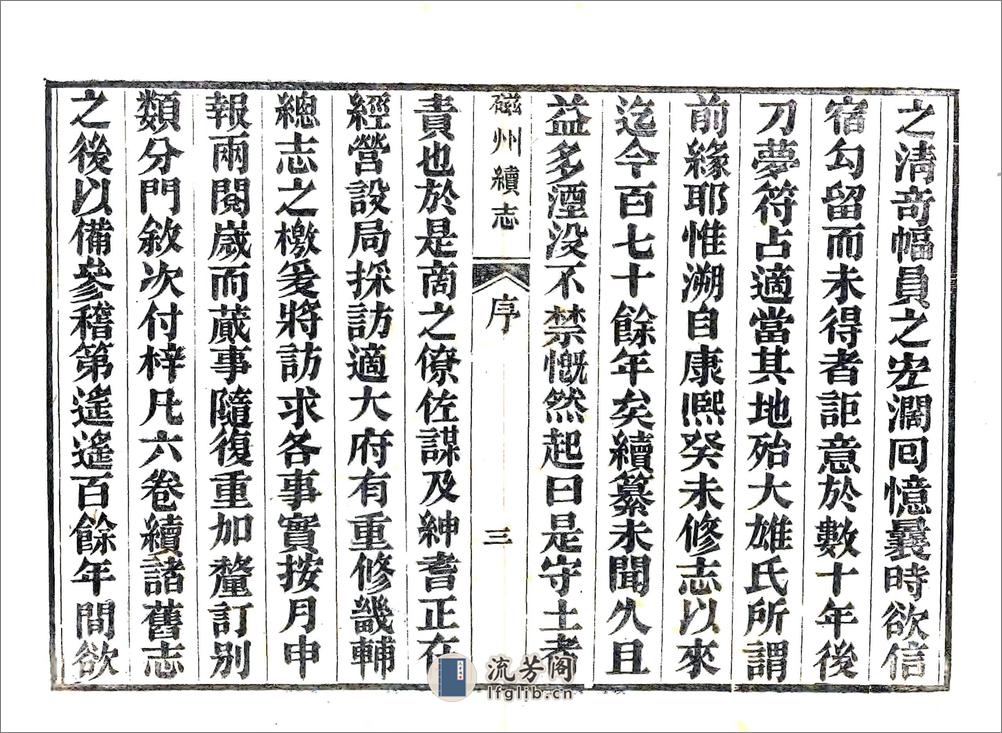 之清奇幅員之宏濶囘憶曩時欲信
宿勾留而未得者詎意於數十年後
刀夢符占適當其地殆大雄氏所謂
前緣耶惟溯自康熙癸未修志以來
迄今百七十餘年矣續纂未聞久且
益多湮没不禁慨然起曰是守土者
磁州續志
序
三
責也於是商之僚佐謀及紳耆正在
經營設局採訪適大府有重修畿輔
總志之檄爰將訪求各事實按月申
報兩閱歲而蕆事隨復重加釐訂別
類分門敘次付梓凡六卷續諸舊志
之後以備參稽第遙遙百餘年間欲
流芳阁
lfglib.cn